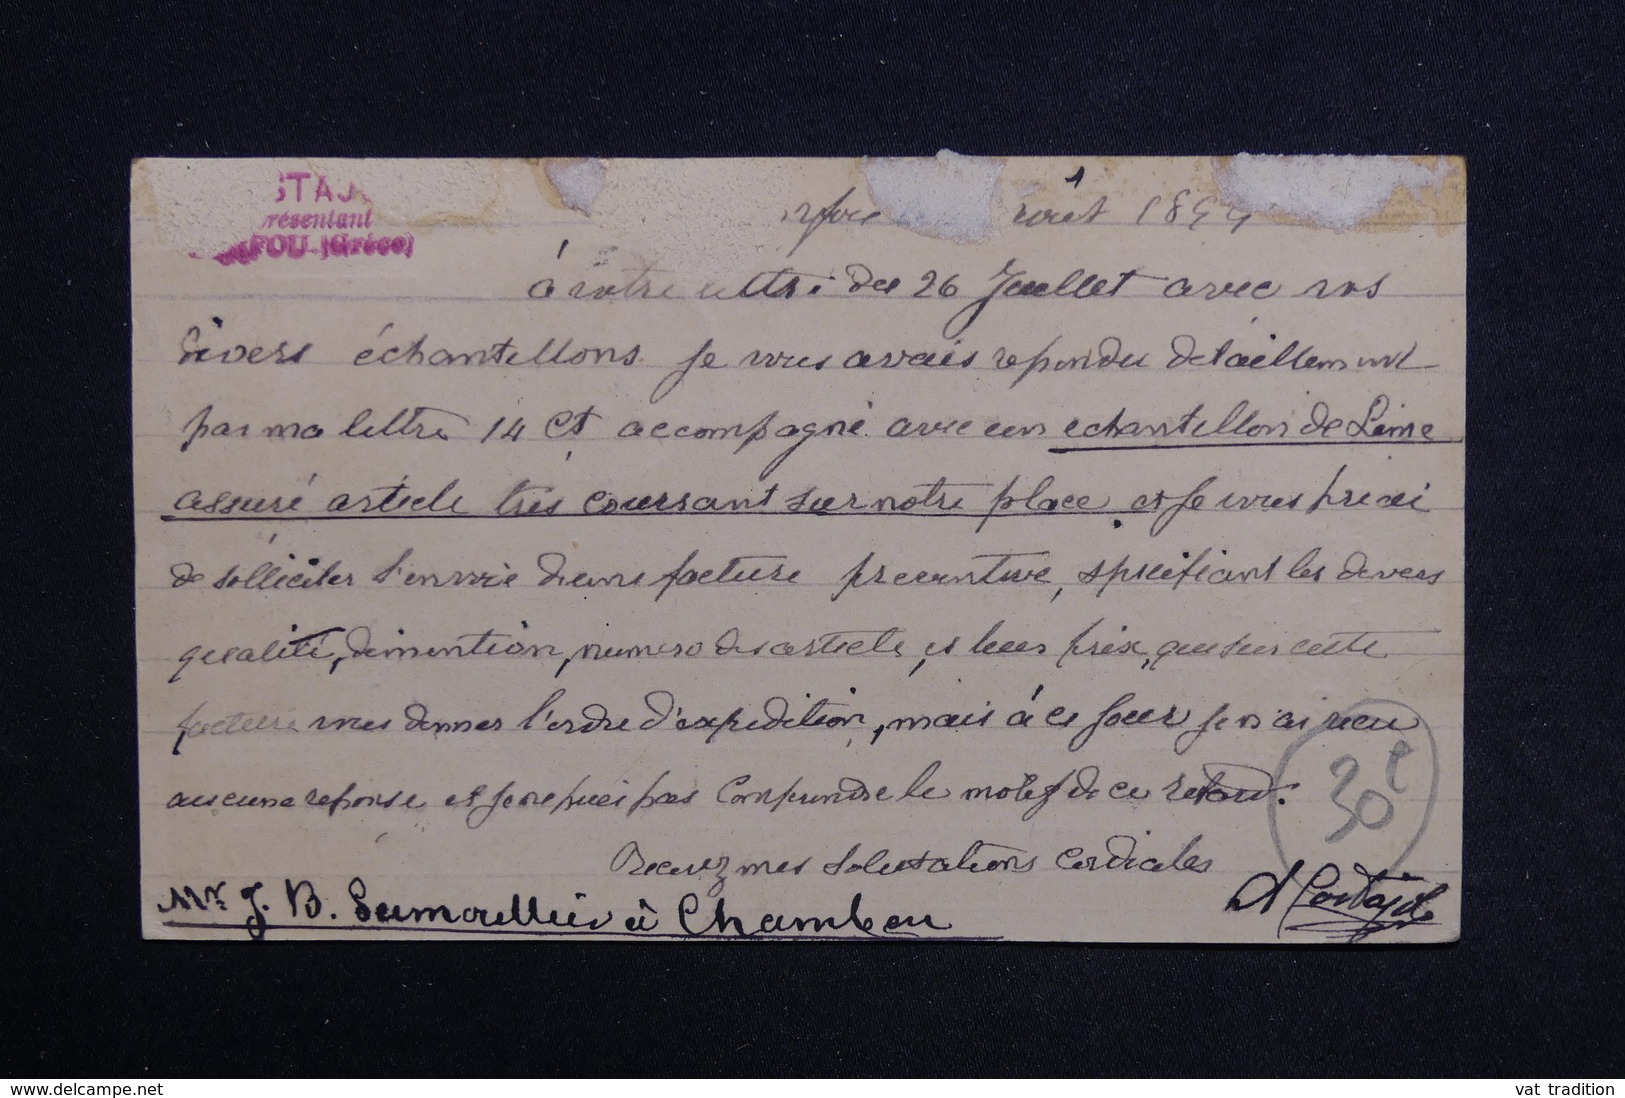 STAJ
résentant
FOU (Grèce)
rfou août 1899
à votre lettre du 26 Juillet avec vos
divers échantellons je vous avais repondu detaillement
par ma lettre 14 Ct accompagné avec un echantellon de Lime
assuré article très courrant sur notre place et je vous priai
de solliciter l'envoie d'une facture , spécifiant les divers
qualité, dimention, numero des article, et leur prix, que sur cette
facture vous donner l'ordre d'expedition, mais à ce jour je n'ai recu
aucune reponse et je ne puis pas comprendre le motif de ce retard.
Recevez mes salutations cordiales
30c
Mr J. B. à Chambeu
www.delcampe.net
vat tradition